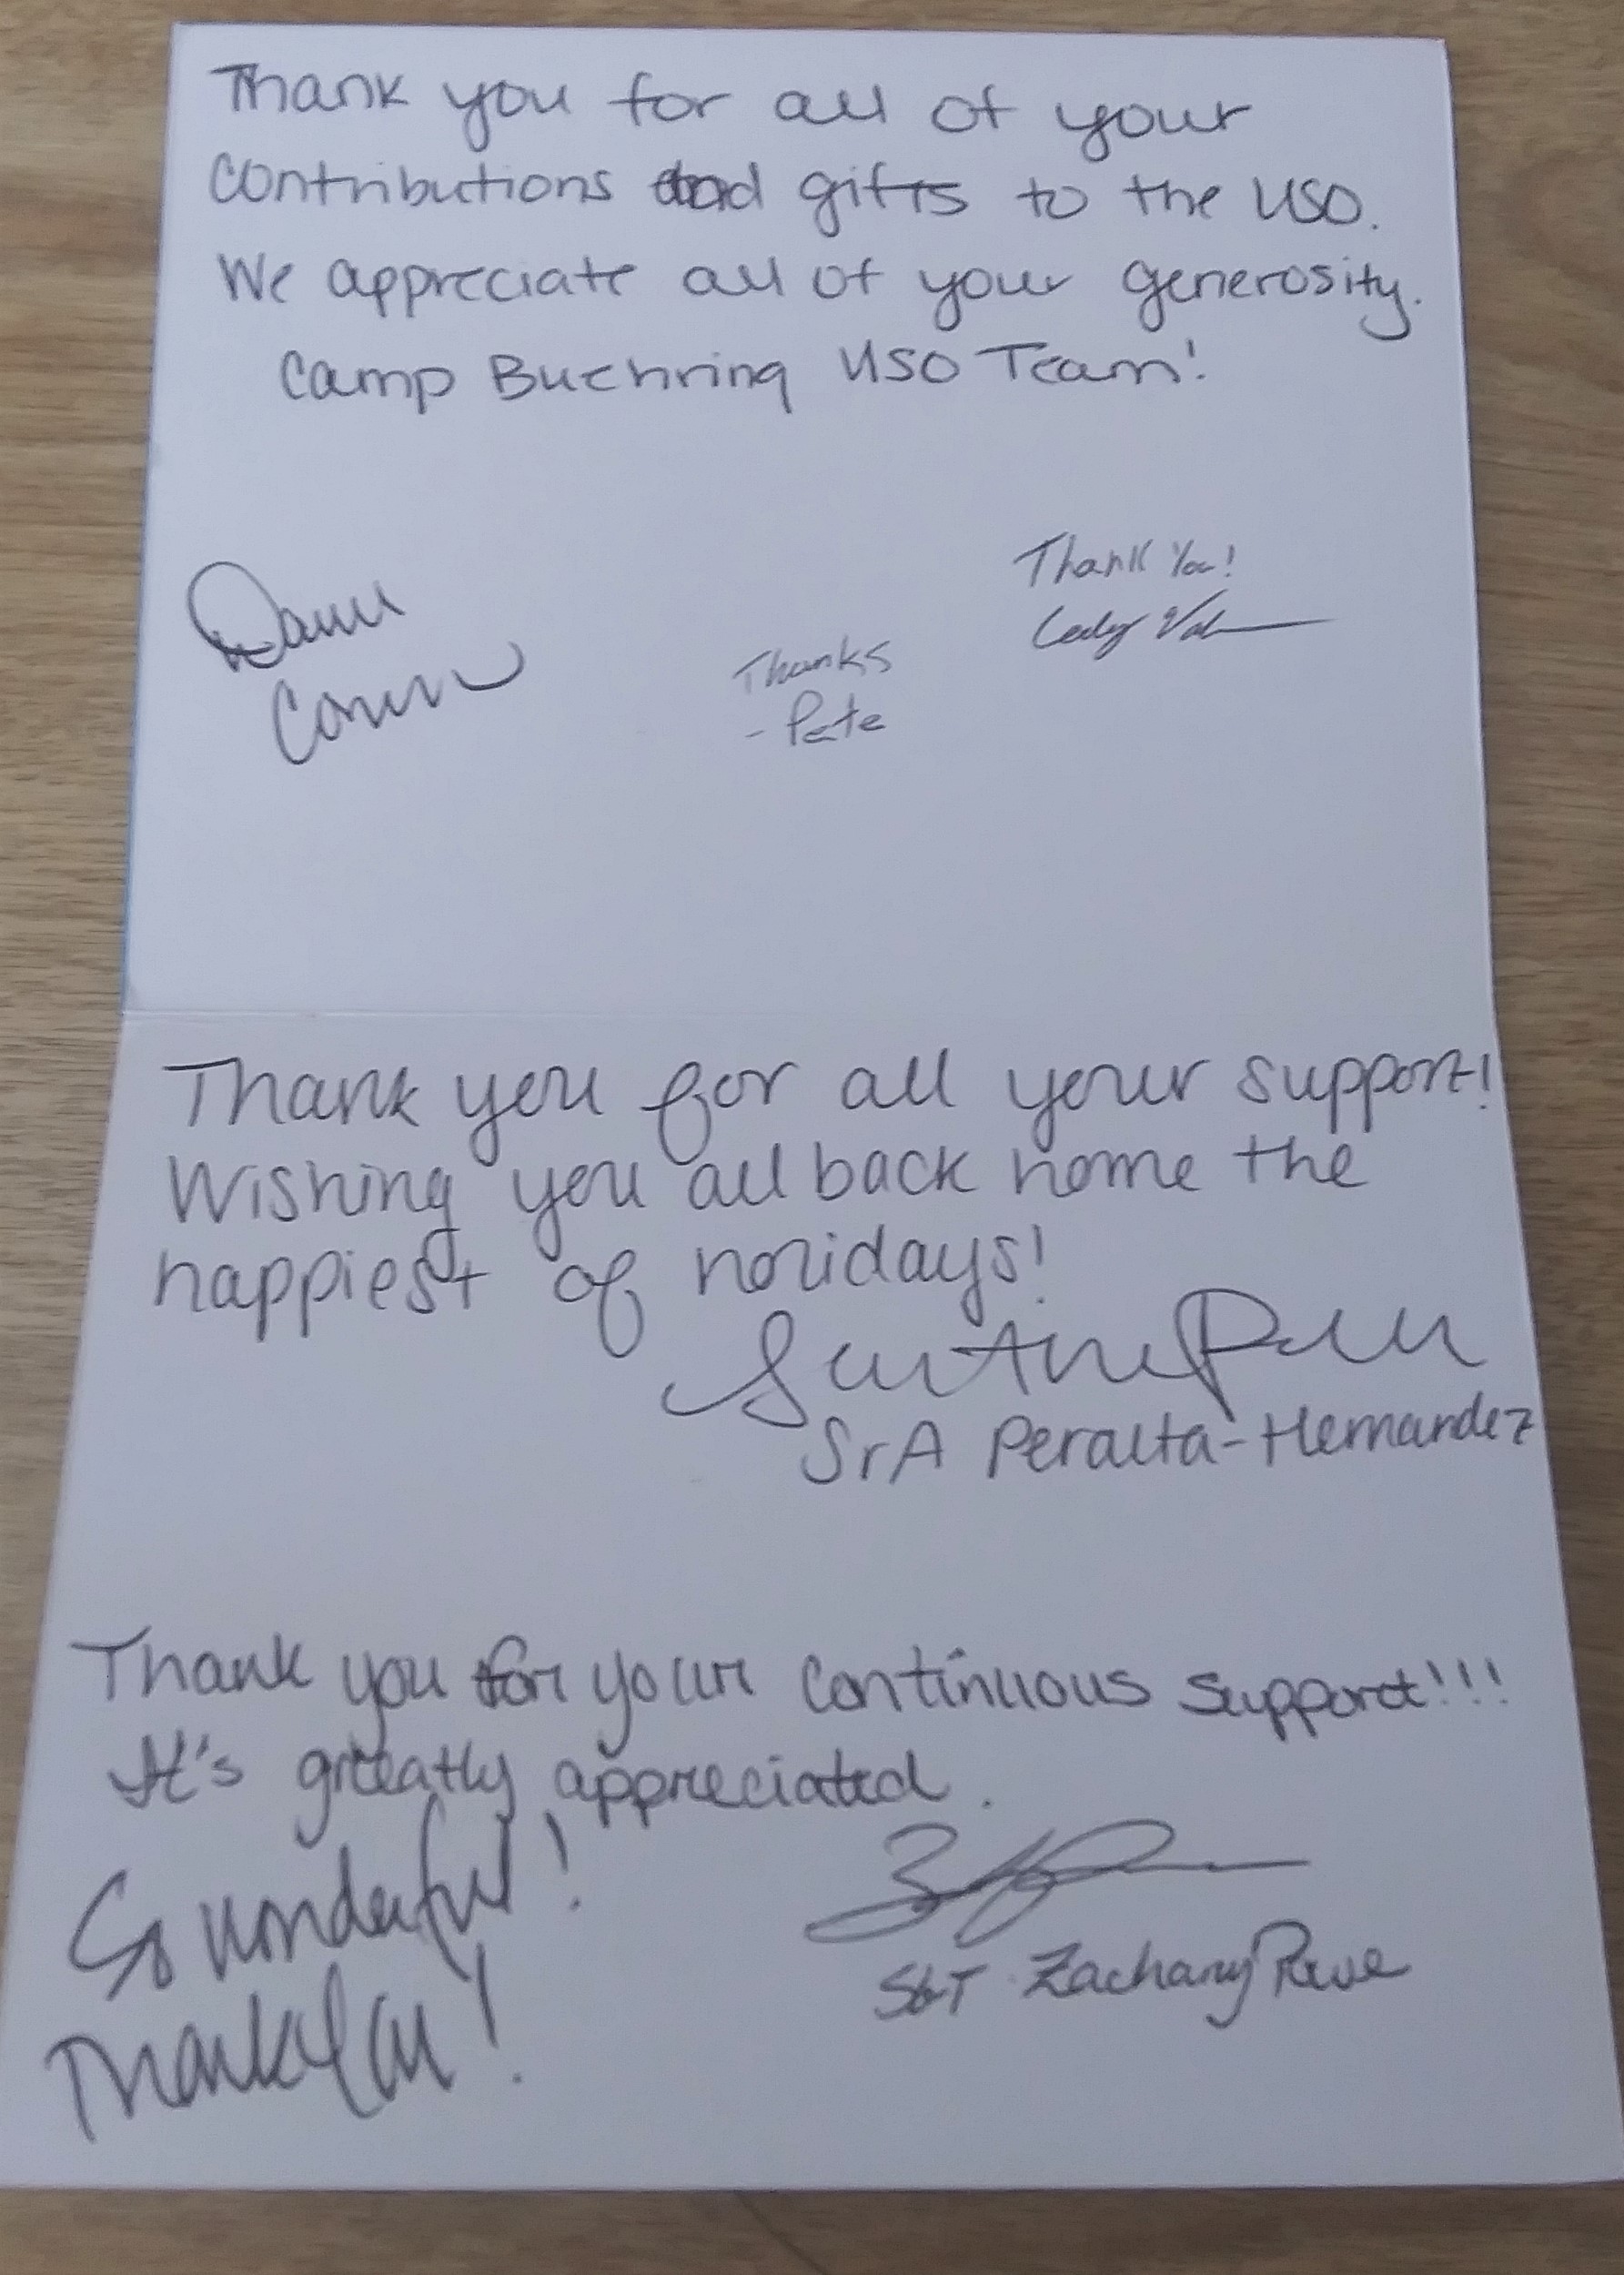 Thank you for all of your
contributions and gifts to the USO.
We appreciate all of your generosity.
Camp Buehring USO Team!
Thank You!
Thanks
- Pete
Thank you for all your support!
Wishing you all back home the
happiest of holidays!
SrA Peralta-Hernandez
Thank you for your continuous support!!!
It's greatly appreciated.
So wonderful!
Thank You!
SGT Zachary